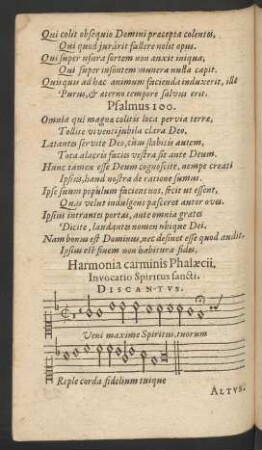 Qui colit obsequio Domini precepta colentes,
Qui quod jurârit fallere nolit opus.
Qui super usura sortem non auxit iniqua,
Qui super insontem munera nulla capit.
Quisquis ad hæc animum facienda induxerit, ille
Purus, & æterno tempore salvus erit.
Psalmus 100.
Omnia qui magna colitis loca pervia terra,
Tollite viventi jubila clara Deo,
Lætantes servite Deo, cum stabitis autem,
Tota alacris facies vestra sit ante Deum.
Hunc tamen esse Deum cognoscite, nempe creati
Ipsius, haud nostra de ratione sumus.
Ipse suum populum faciens nos, fecit ut essent,
Quas velut indulgens pasceret autor oves.
Ipsius intrantes portas, ante omnia grates
Dicite, laudantes nomen ubique Dei.
Nam bonus est Dominus, nec desinet esse quod audit,
Ipsius est finem non habitura fides.
Harmonia carminis Phalæcii,
Invocatio Spiritus sancti.
DISCANTVS.
Veni maxime Spiritus, tuorum
Reple corda fidelium tuique
ALTVS.